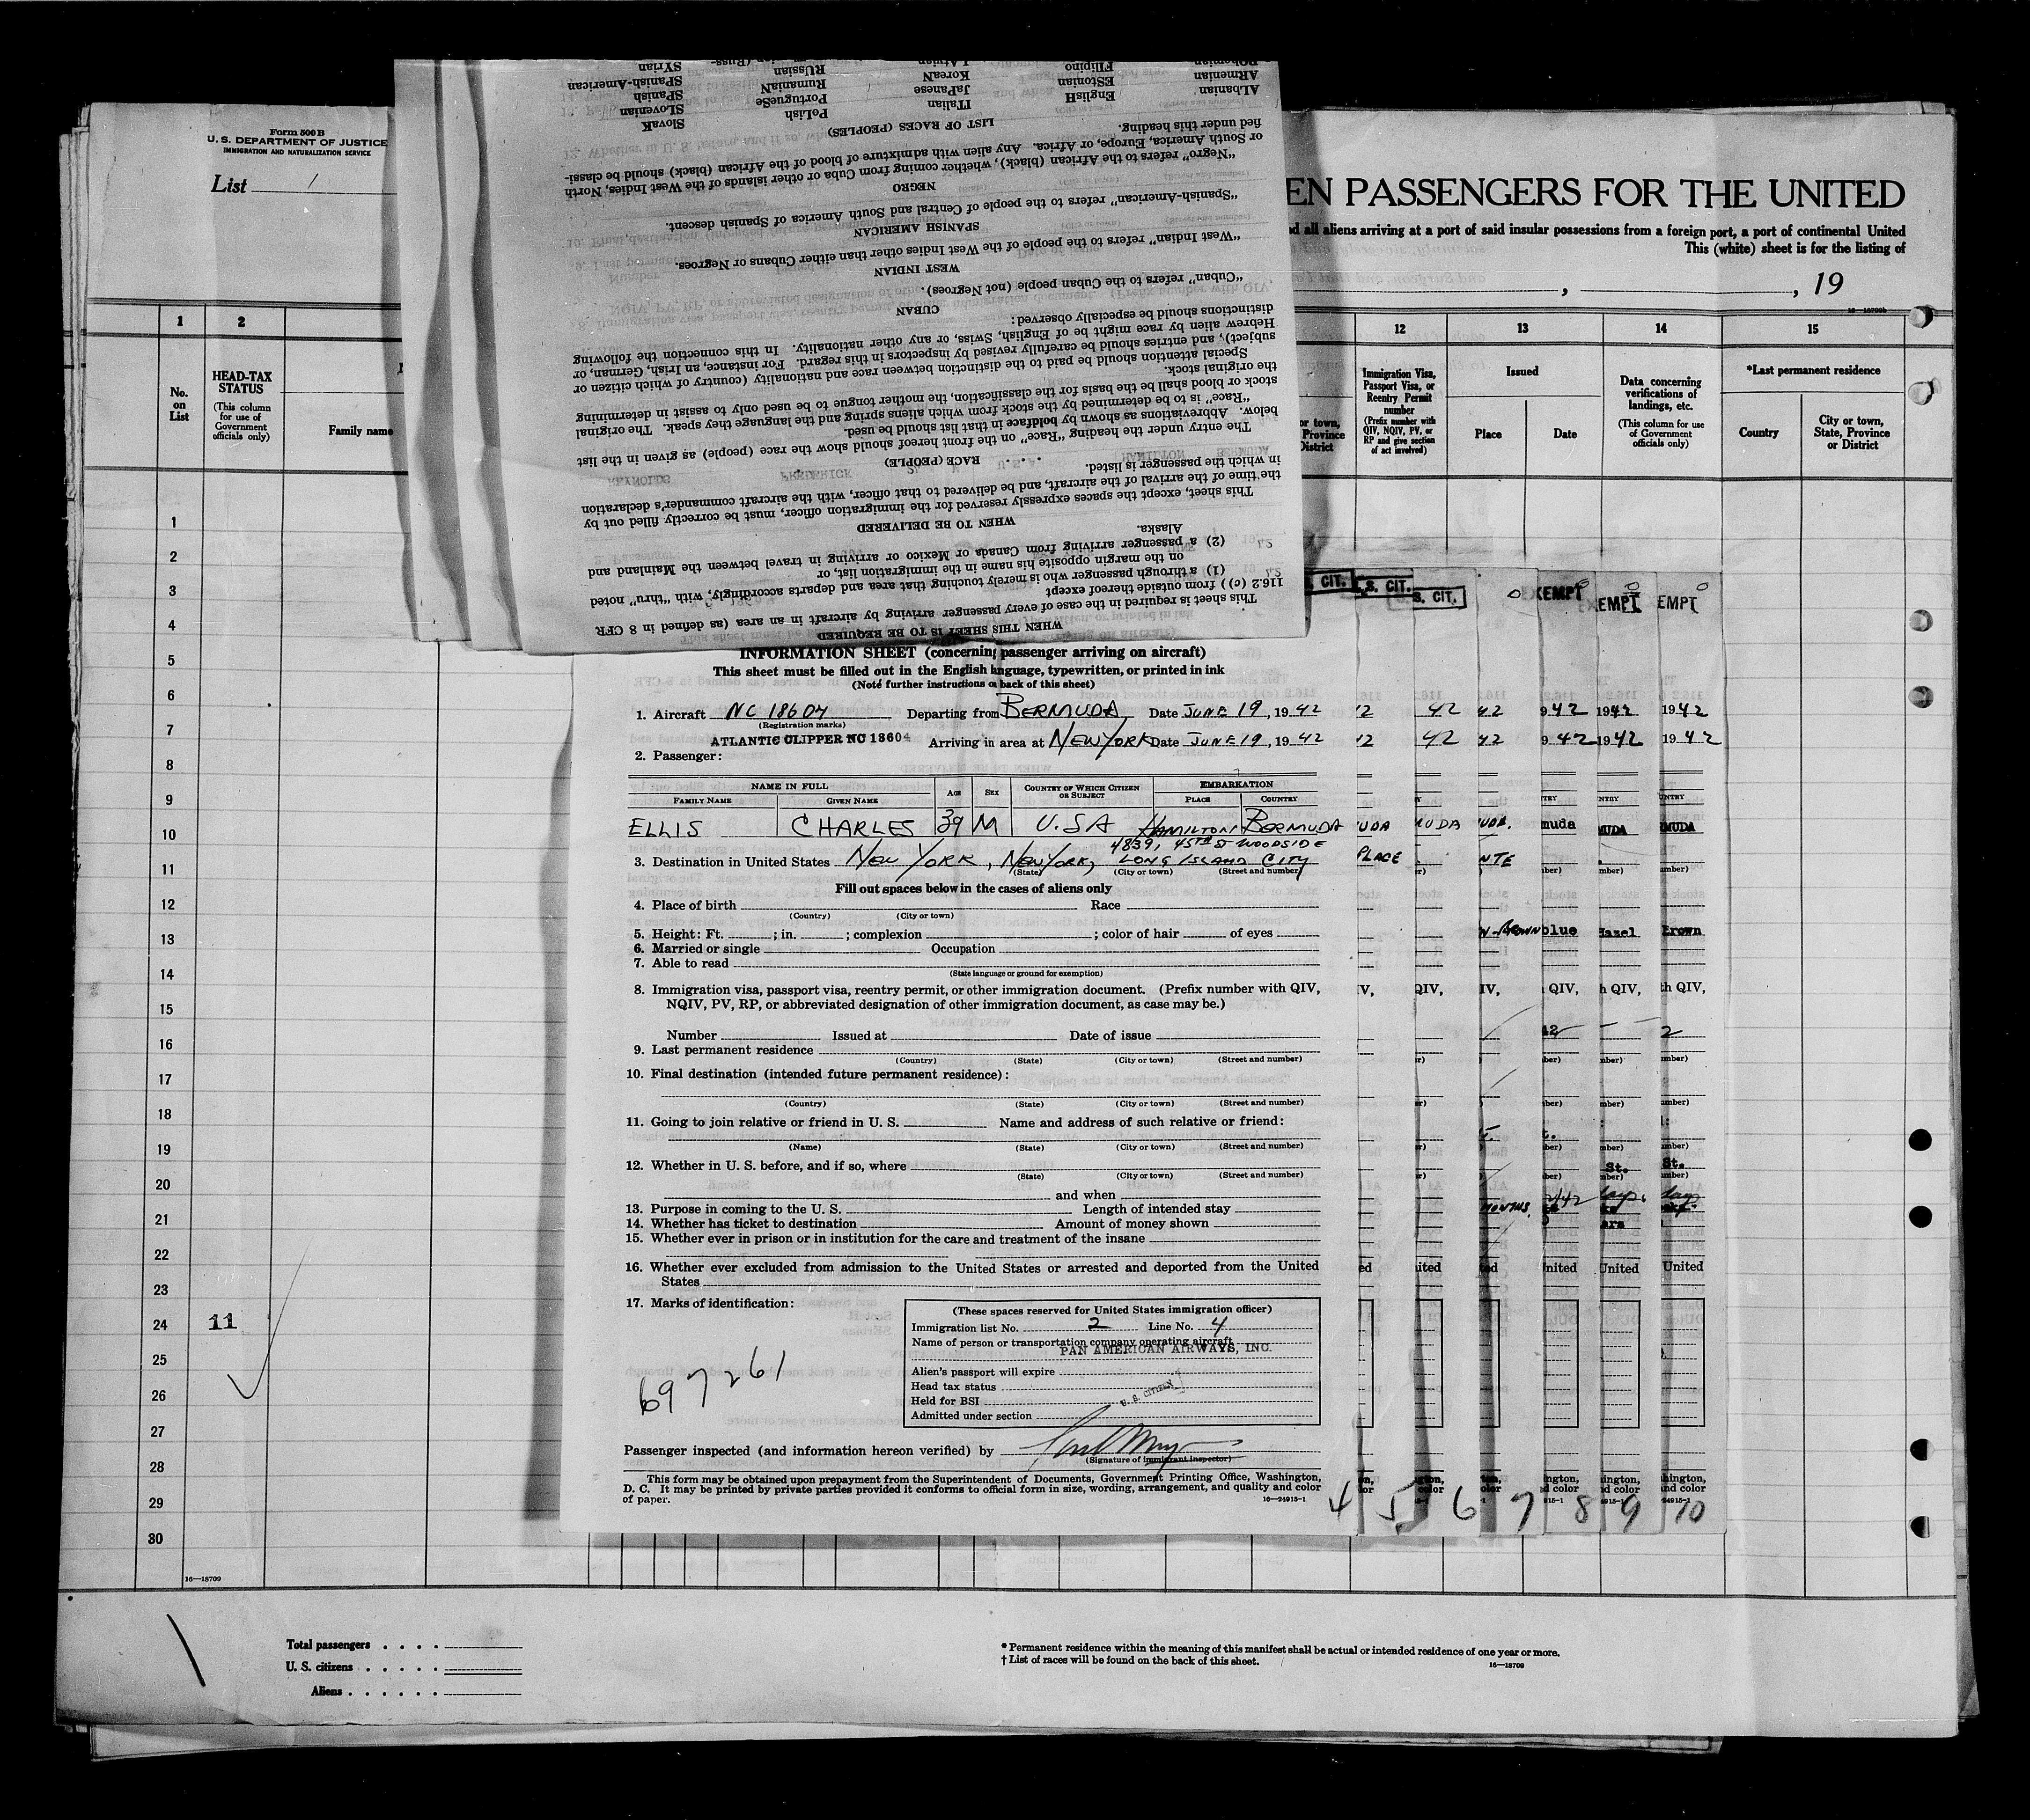 Form 500 B
U. S. DEPARTMENT OF JUSTICE
IMMIGRATION AND NATURALIZATION SERVICE
List 1
EN PASSENGERS FOR THE UNITED
d all aliens arriving at a port of said insular possessions from a foreign port, a port of continental United
This (white) sheet is for the listing of
, , 19
16—18709b
1 2 12 13 14 15
No. on List
HEAD-TAX STATUS
(This column for use of Government officials only)
Family name
or town, Province District
Immigration Visa, Passport Visa, or Reentry Permit number
(Prefix number with QIV, NQIV, PV, or RP and give section of act involved)
Issued
Place Date
Data concerning verifications of landings, etc.
(This column for use of Government officials only)
*Last permanent residence
Country
City or town, State, Province or District
WHEN THIS SHEET IS TO BE REQUIRED
This sheet is required in the case of every passenger arriving by aircraft in an area (as defined in 8 CFR
116.2 (c)) from outside thereof except
(1) a through passenger who is merely touching that area and departs accordingly, with "thru" noted
on the margin opposite his name in the immigration list, or
(2) a passenger arriving from Canada or Mexico or arriving in travel between the Mainland and
Alaska.
WHEN TO BE DELIVERED
This sheet, except the spaces expressly reserved for the immigration officer, must be correctly filled out by
the time of the arrival of the aircraft, and be delivered to that officer, with the aircraft commander's declaration
in which the passenger is listed.
RACE (PEOPLE)
The entry under the heading "Race" on the front hereof should show the race (people) as given in the list
below. Abbreviations as shown by boldface in that list should be used.
"Race" is to be determined by the stock from which aliens spring and the language they speak. The original
stock or blood shall be the basis for the classification, the mother tongue to be used only to assist in determining
the original stock.
Special attention should be paid to the distinction between race and nationality (country of which citizen or
subject), and entries should be carefully revised by inspectors in this regard. For instance, an Irish, German, or
Hebrew alien by race might be of English, Swiss, or any other nationality. In this connection the following
distinctions should be especially observed:
CUBAN
"Cuban" refers to the Cuban people (not Negroes).
WEST INDIAN
"West Indian" refers to the people of the West Indies other than either Cubans or Negroes.
SPANISH AMERICAN
"Spanish-American" refers to the people of Central and South America of Spanish descent.
NEGRO
"Negro" refers to the African (black), whether coming from Cuba or other islands of the West Indies, North
or South America, Europe, or Africa. Any alien with admixture of blood of the African (black) should be classi-
fied under this heading.
LIST OF RACES (PEOPLES)
ALbanian EnglisH ITalian PoLish SlovaK
ARmenian EStonian JaPanese PortugueSe SLovenian
BOhemian FIlipino KoreaN RumaniaN SPaniSh
LAtvian RUssian SPanish-American
SYrian
S. CIT. U.S. CIT. S. CIT. EXEMPT EMPT EMPT
INFORMATION SHEET (concerning passenger arriving on aircraft)
This sheet must be filled out in the English language, typewritten, or printed in ink
(Note further instructions on back of this sheet)
1. Aircraft NC 18604 Departing from BERMUDA Date JUNE 19, 1942
(Registration marks)
ATLANTIC CLIPPER NC 18604 Arriving in area at NEW YORK Date JUNE 19, 1942
2. Passenger:
NAME IN FULL AGE SEX COUNTRY OF WHICH CITIZEN OR SUBJECT EMBARKATION
FAMILY NAME GIVEN NAME PLACE COUNTRY
ELLIS CHARLES 39 M U.S.A HAMILTON BERMUDA
4839, 45TH ST WOODSIDE
3. Destination in United States NEW YORK, NEW YORK, LONG ISLAND CITY
(State) (City or town) (Street and number)
Fill out spaces below in the cases of aliens only
4. Place of birth Race
(Country) (City or town)
5. Height: Ft. ; in. ; complexion ; color of hair of eyes
6. Married or single Occupation
7. Able to read
(State language or ground for exemption)
8. Immigration visa, passport visa, reentry permit, or other immigration document. (Prefix number with QIV,
NQIV, PV, RP, or abbreviated designation of other immigration document, as case may be.)
Number Issued at Date of issue
9. Last permanent residence
(Country) (State) (City or town) (Street and number)
10. Final destination (intended future permanent residence):
(Country) (State) (City or town) (Street and number)
11. Going to join relative or friend in U. S. Name and address of such relative or friend:
(Name) (State) (City or town) (Street and number)
12. Whether in U. S. before, and if so, where
(State) (City or town) (Street and number)
and when
13. Purpose in coming to the U. S. Length of intended stay
14. Whether has ticket to destination Amount of money shown
15. Whether ever in prison or in institution for the care and treatment of the insane
16. Whether ever excluded from admission to the United States or arrested and deported from the United
States
17. Marks of identification:
(These spaces reserved for United States immigration officer)
Immigration list No. 2 Line No. 4
Name of person or transportation company operating aircraft
PAN AMERICAN AIRWAYS, INC.
Alien's passport will expire
Head tax status
Held for BSI U. S. CITIZEN
Admitted under section
697261
Passenger inspected (and information hereon verified) by
(Signature of immigrant inspector)
This form may be obtained upon prepayment from the Superintendent of Documents, Government Printing Office, Washington,
D. C. It may be printed by private parties provided it conforms to official form in size, wording, arrangement, and quality and color
of paper. 16—24915-1
4 5 6 7 8 9 10
1
2
3
4
5
6
7
8
9
10
11
12
13
14
15
16
17
18
19
20
21
22
23
24 11
25
26
27
28
29
30
16—18709
Total passengers . . . .
U. S. citizens . . . . .
Aliens . . . . . .
* Permanent residence within the meaning of this manifest shall be actual or intended residence of one year or more.
† List of races will be found on the back of this sheet.
16—18709